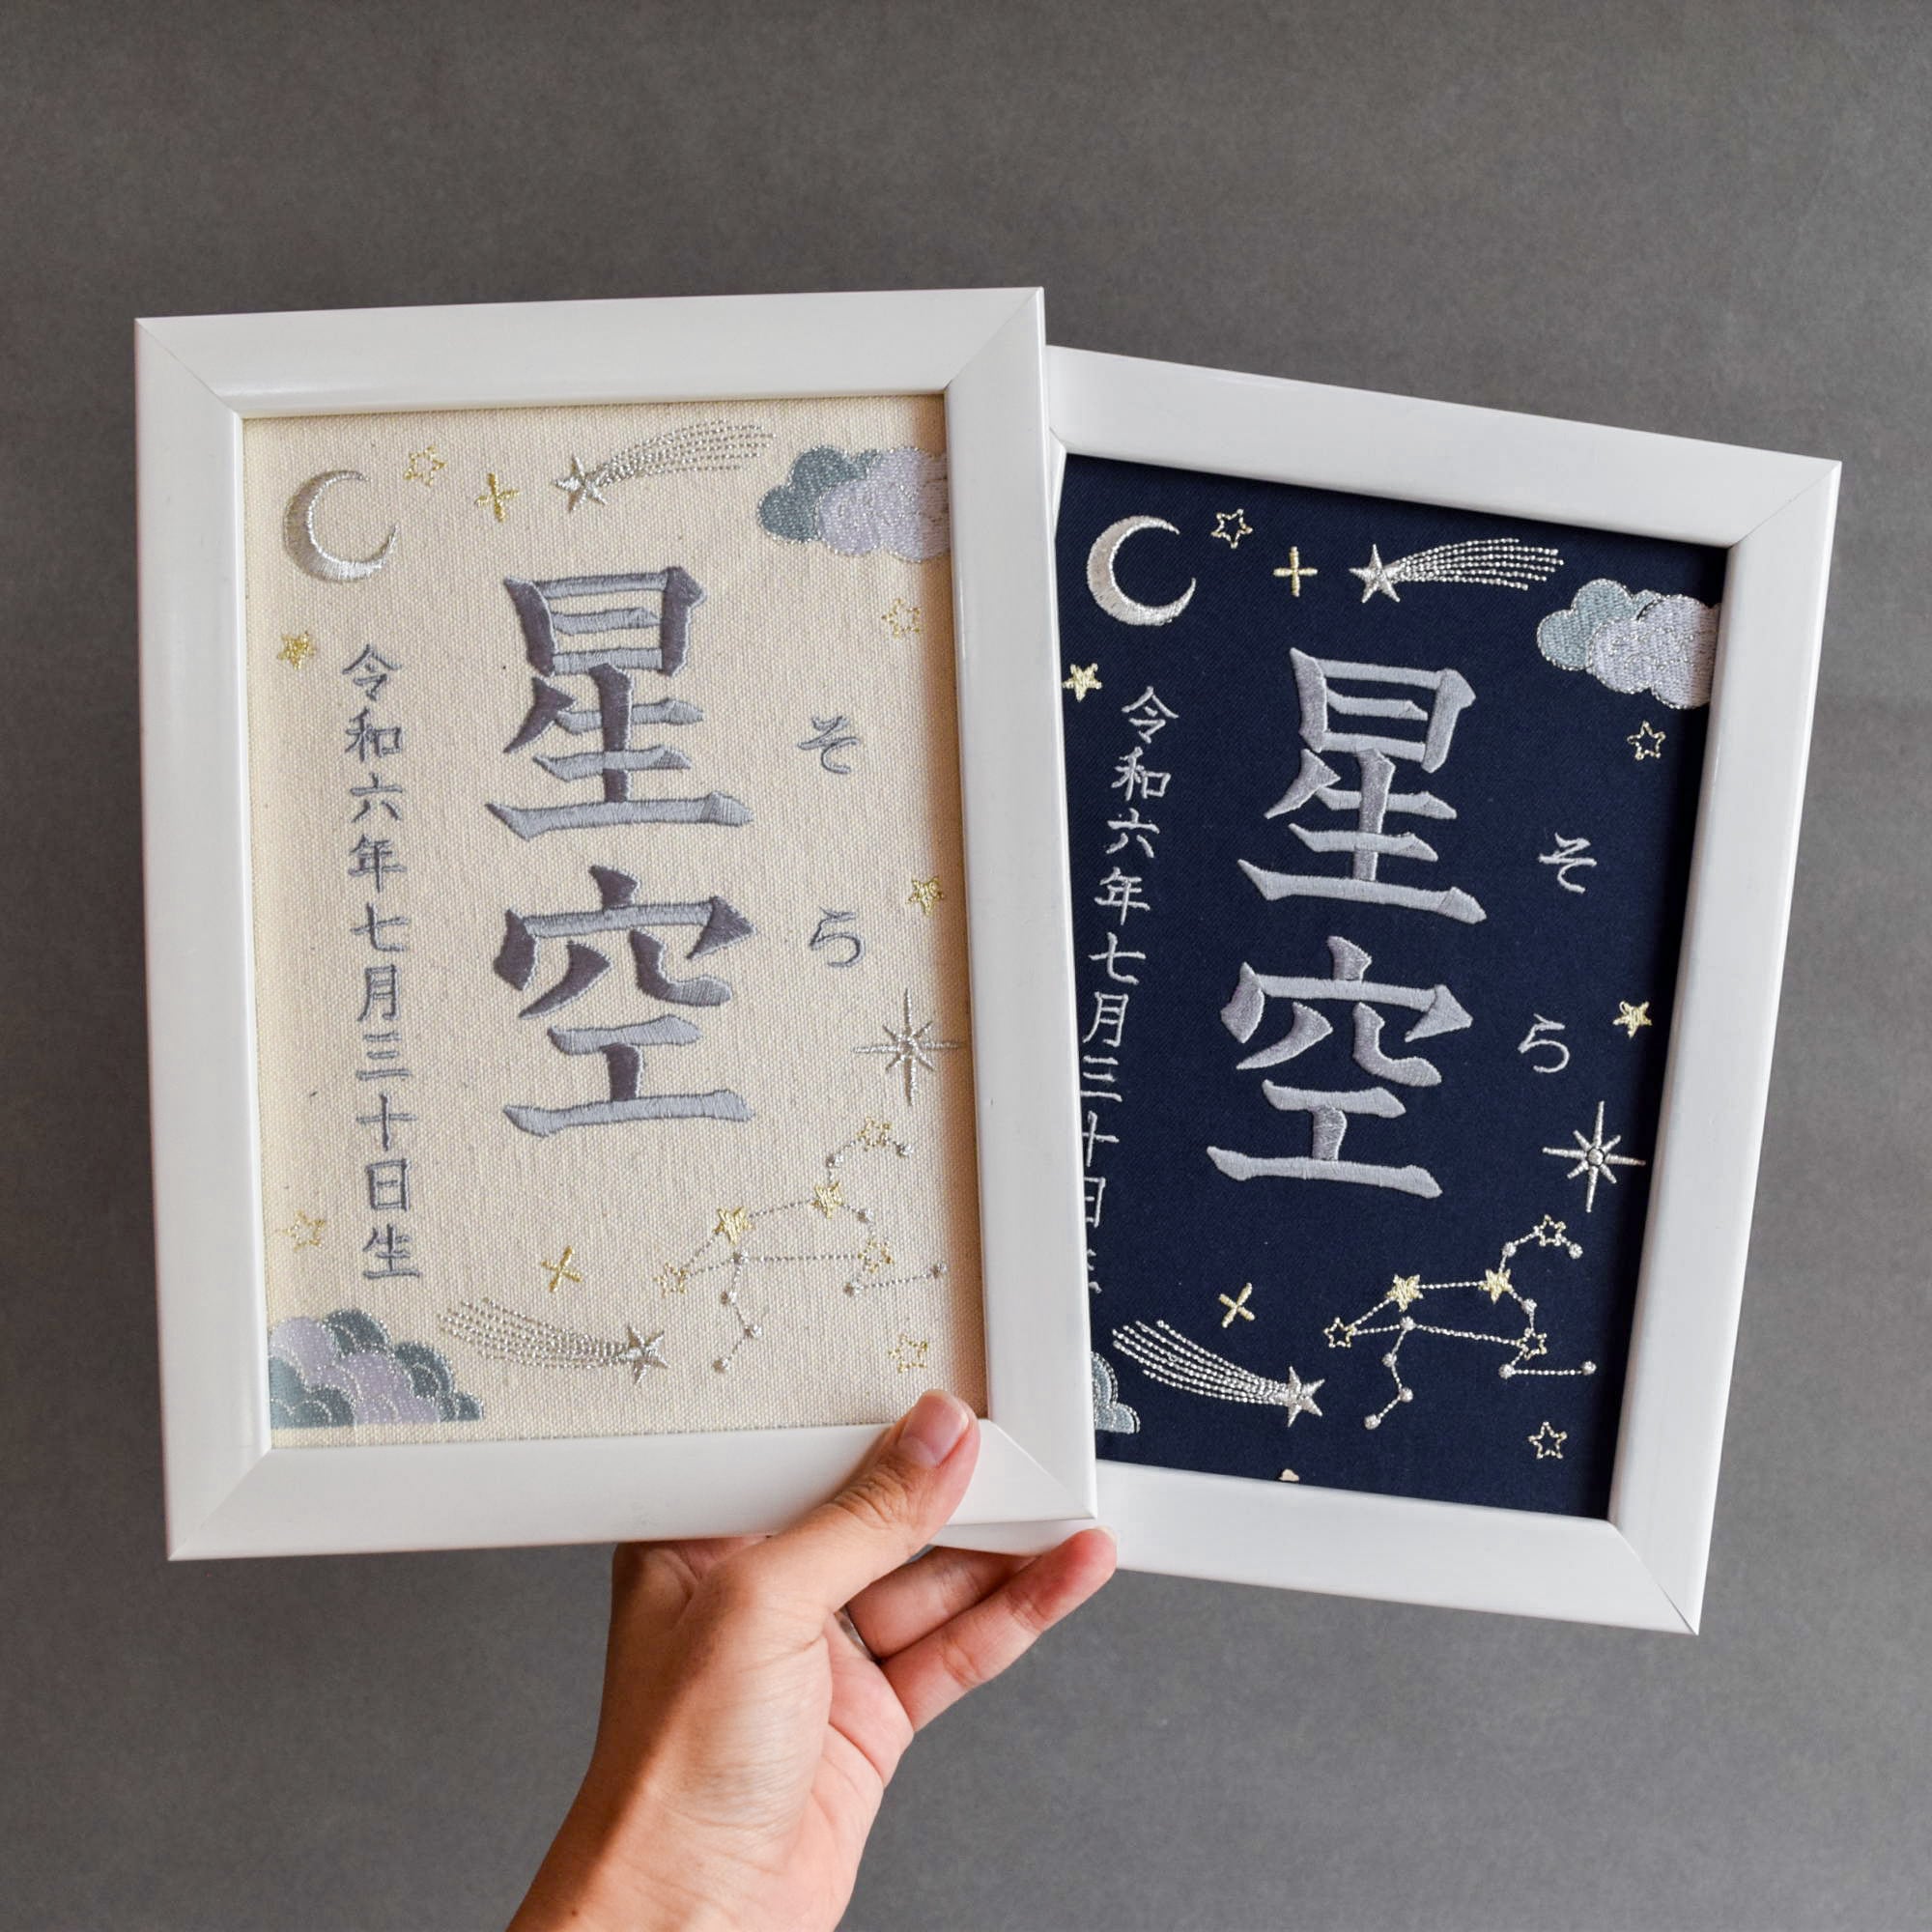 そら
星空
令和六年七月三十日生
そら
星空
令和六年七月三十日生